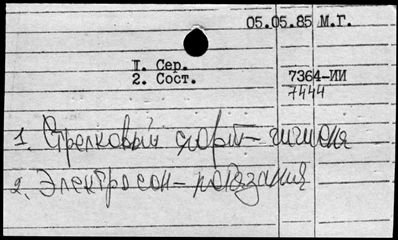 05.05.85 М.Г.
I. Сер.
2. Сост.
7364-ИИ
7444
1. Стрелковый спорт - гигиена
2. Электросон - показания